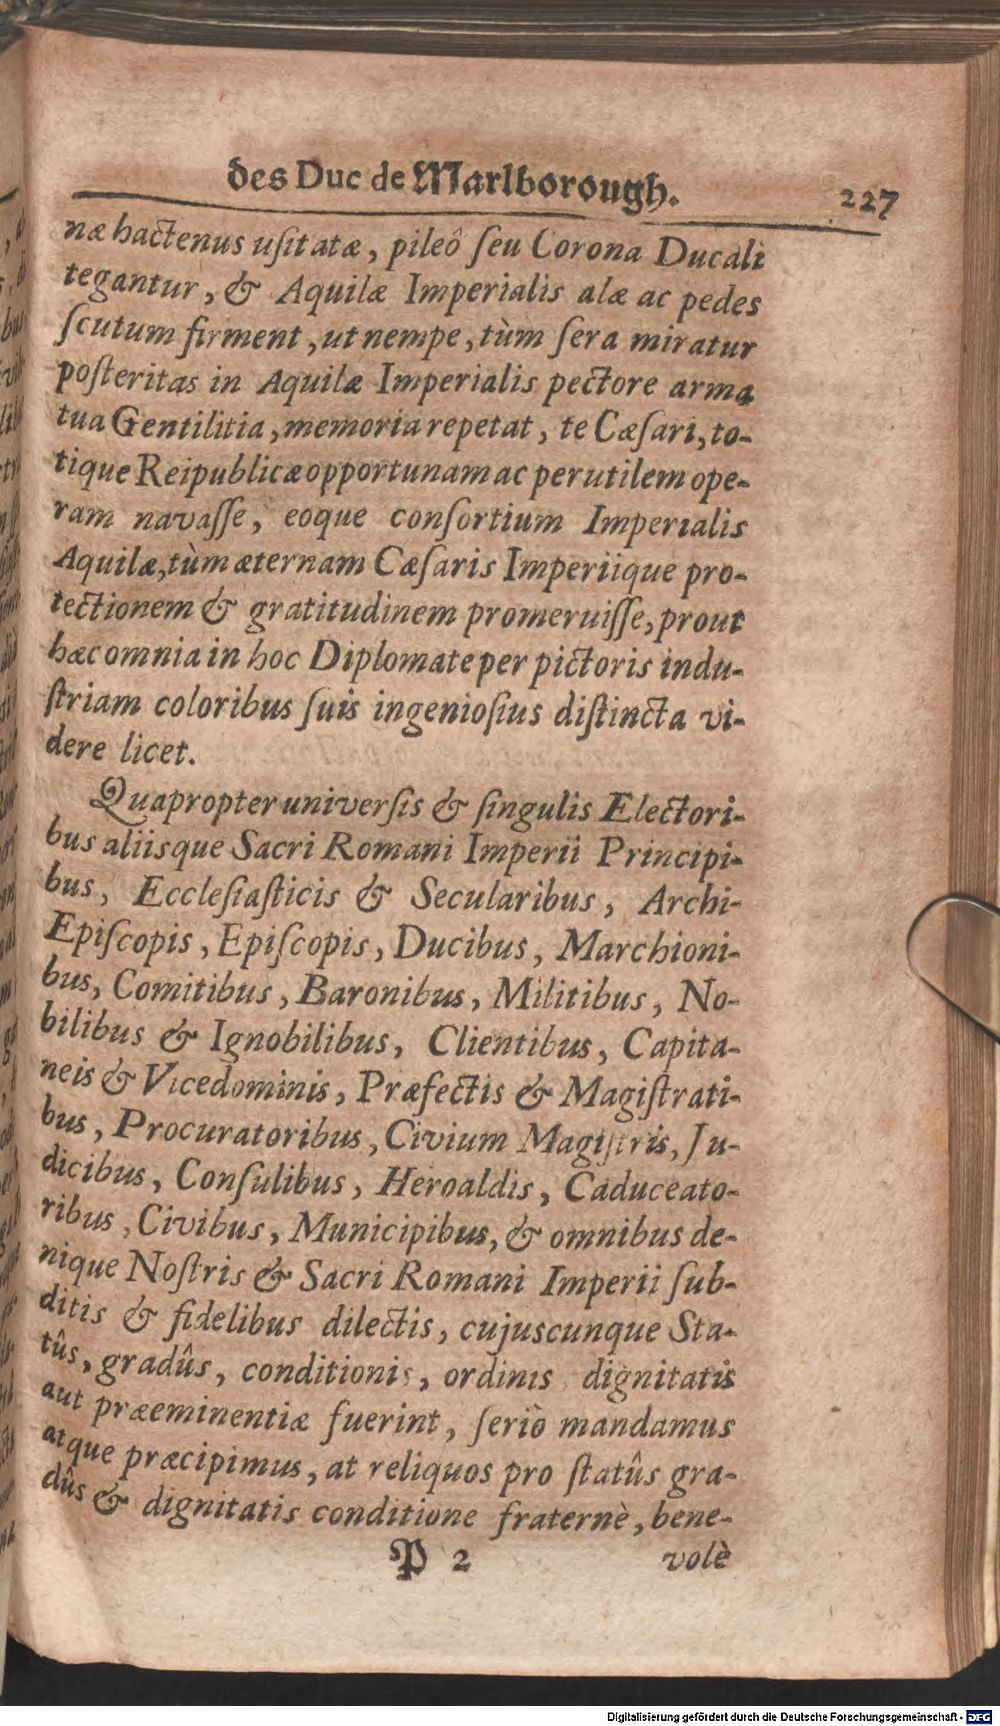 des Duc de Marlborough. 227
næ hactenus uſitatæ, pileô ſeu Corona Ducali
tegantur, & Aquilæ Imperialis alæ ac pedes
ſcutum firment, ut nempe, tùm ſera miratur
poſteritas in Aquilæ Imperialis pectore arma
tua Gentilitia, memoria repetat, te Cæſari, to-
tique Reipublicæ opportunam ac perutilem ope-
ram navaſſe, eoque conſortium Imperialis
Aquilæ, tùm æternam Cæſaris Imperiique pro-
tectionem & gratitudinem promeruiſſe, prout
hæc omnia in hoc Diplomate per pictoris indu-
ſtriam coloribus ſuis ingenioſius diſtincta vi-
dere licet.
Quapropter univerſis & ſingulis Electori-
bus aliisque Sacri Romani Imperii Principi-
bus, Eccleſiaſticis & Secularibus, Archi-
Epiſcopis, Epiſcopis, Ducibus, Marchioni-
bus, Comitibus, Baronibus, Militibus, No-
bilibus & Ignobilibus, Clientibus, Capita-
neis & Vicedominis, Præfectis & Magiſtrati-
bus, Procuratoribus, Civium Magiſtris, Ju-
dicibus, Conſulibus, Heroaldis, Caduceato-
ribus, Civibus, Municipibus, & omnibus de-
nique Noſtris & Sacri Romani Imperii ſub-
ditis & fidelibus dilectis, cujuscunque Sta-
tûs, gradûs, conditionis, ordinis dignitatis
aut præeminentiæ fuerint, ſeriò mandamus
atque præcipimus, at reliquos pro ſtatûs gra-
dûs & dignitatis conditione fraternè, bene-
P 2 volè
Digitalisierung gefördert durch die Deutsche Forschungsgemeinschaft - DFG